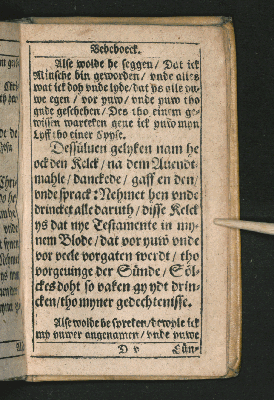 Bedeboeck.
Alse wolde he seggen / Dat ick
Minsche bin geworden / vnde alles
wat ick doh vnde lyde / dat ys alle yu-
we egen / vor yuw / vnde yuw tho
gude geschehen / Des tho einem ge-
wissen warteken geue ick yuw myn
Lyff tho einer Spyse.
Dessüluen gelyken nam he
ock den Kelck / na dem Auendt-
mahle / danckede / gaff en den /
vnde sprack: Nehmet hen vnde
drincket alle daruth / disse Kelck
ys dat nye Testamente in my-
nem Blode / dat vor yuw vnde
vor veele vorgaten werdt / tho
vorgeuinge der Sünde / Söl-
ckes doht so vaken gy ydt drin-
cken / tho myner gedechtenisse.
Alse wolde he spreken / dewyle ick
my yuwer angenamen / vnde yuwe
D v
Sün-